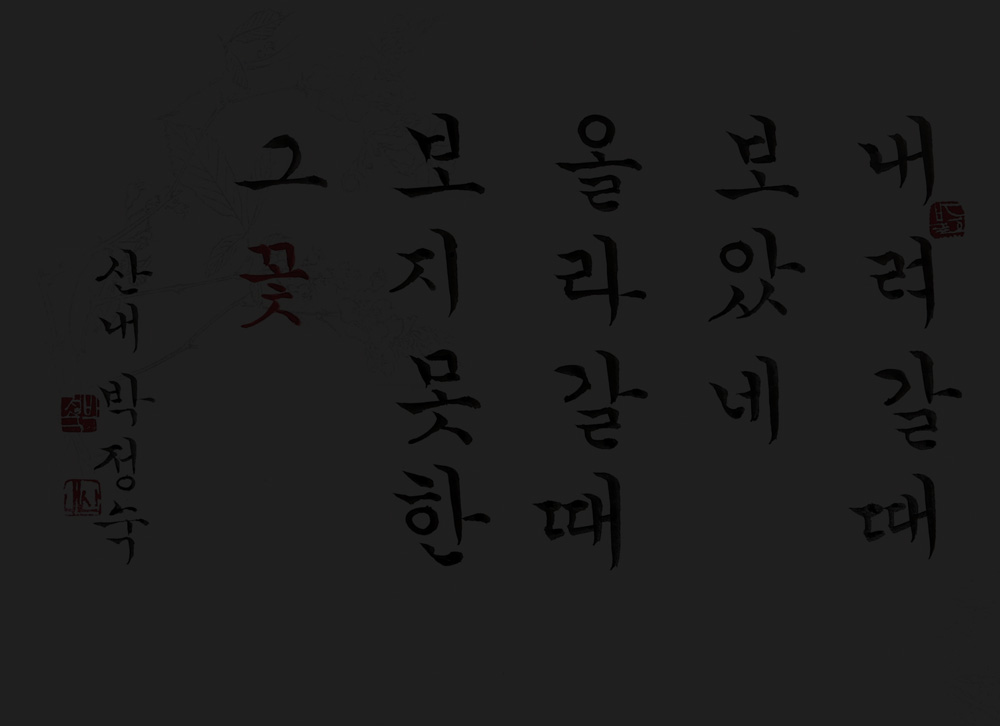 내려갈때
보았네
올라갈때
보지못한
그꽃
산내 박정숙